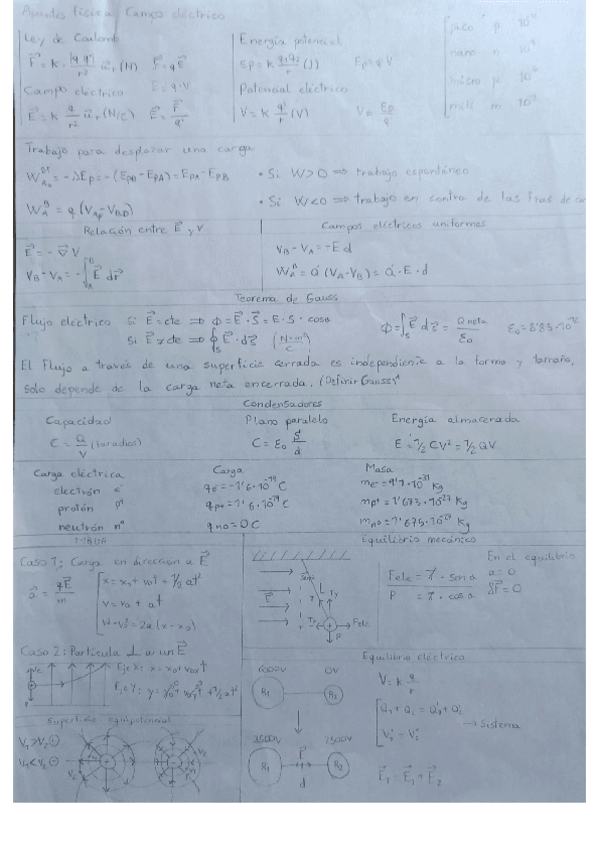 Apuntes física Campo eléctrico
Ley de Coulomb
F = k · |q q'| / r² u_r (N)   F = q E
Campo eléctrico   E = q · V
E = k q / r² u_r (N/C)   E = F / q'
Energía potencial
Ep = k q₁q₂ / r (J)   Ep = q V
Potencial eléctrico
V = k q' / r (V)   V = Ep / q
pico p 10
nano n 10
micro μ 10
mili m 10
Trabajo para desplazar una carga
W = -ΔEp = -(EpB - EpA) = EpA - EpB
W = q (V - V)
• Si W > 0 ⇒ trabajo espontáneo
• Si W < 0 ⇒ trabajo en contra de las fzas de
Relación entre E y V
E = - ∇ V
VB - VA = - ∫ E dr
Campos eléctricos uniformes
VB - VA = -E d
W = q' (VA - VB) = q' · E · d
Teorema de Gauss
Flujo eléctrico Si E = cte ⇒ Φ = E · S = E · S · cosα
Si E ≠ cte ⇒ ∮ E · ds (N·m² / C)
Φ = ∫ E ds = Q neta / ε₀   ε₀ = 8'85 · 10⁻¹²
El flujo a través de una superficie cerrada es independiente a la forma y tamaño,
solo depende de la carga neta encerrada. (Definir Gauss)
Condensadores
Capacidad
C = Q / V (faradios)
Plano paralelo
C = ε₀ S / d
Energía almacenada
E = 1/2 CV² = 1/2 QV
Carga eléctrica   Carga   Masa
electrón e⁻   qe = -1'6 · 10⁻¹⁹ C   me⁻ = 9'1 · 10⁻³¹ Kg
protón p⁺   qp+ = 1'6 · 10⁻¹⁹ C   mp+ = 1'673 · 10⁻²⁷ Kg
neutrón n⁰   qn0 = 0 C   mn0 = 1'675 · 10⁻²⁷ Kg
Caso 1: Carga en dirección a E
a = qE / m
x = x₀ + v₀t + 1/2 at²
v = v₀ + at
v² - v₀² = 2a (x - x₀)
Caso 2: Partícula ⊥ a un E
Eje X: x = x₀ + v₀t
Eje Y: y = y₀ + v₀t + 1/2 at²
Superficie equipotencial
V₁ > V₂
V₁ < V₂
Equilibrio mecánico
E
Ty
Tx
Fele
P
Fele = T · sen α
P = T · cos α
En el equilibrio
a = 0
ΣF = 0
Equilibrio eléctrico
6000V   0V
R₁   R₂
2500V   2500V
R₁   F   R₂
d
V = k q / r
Q₁ + Q₂ = Q'₁ + Q'₂
V'₁ = V'₂
→ Sistema
E = E₁ + E₂